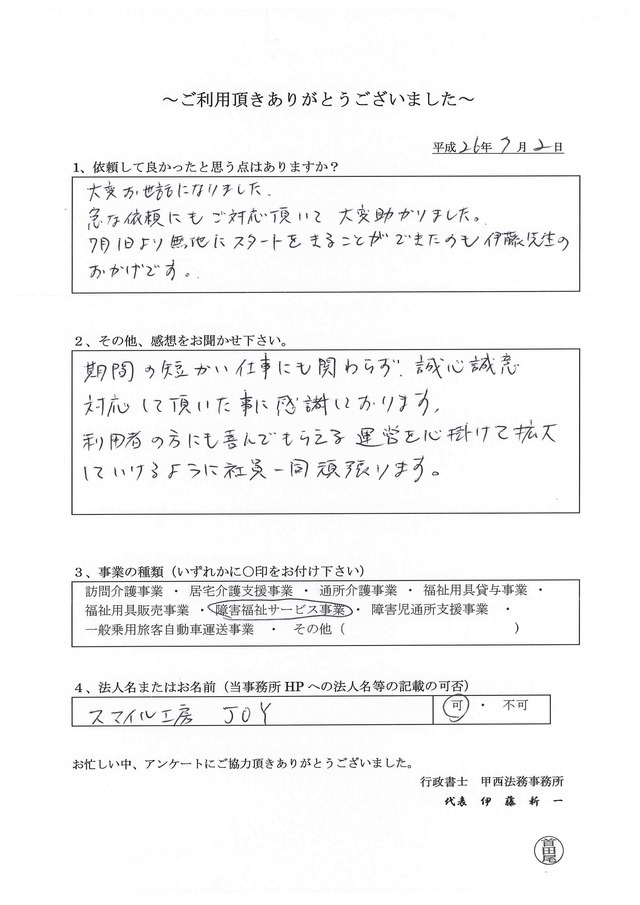 ～ご利用頂きありがとうございました～
平成26年7月2日
1、依頼して良かったと思う点はありますか？
大変お世話になりました。
急な依頼にもご対応頂いて大変助かりました。
7月1日より無地にスタートをきることができたのも伊藤先生の
おかげです。
2、その他、感想をお聞かせ下さい。
期間の短かい仕事にも関わらず、誠心誠意
対応して頂いた事に感謝しております。
利用者の方にも喜んでもらえる運営を心掛けて拡大
していけるように社員一同頑張ります。
3、事業の種類（いずれかに〇印をお付け下さい）
訪問介護事業 ・ 居宅介護支援事業 ・ 通所介護事業 ・ 福祉用具貸与事業 ・
福祉用具販売事業 ・ 障害福祉サービス事業 ・ 障害児通所支援事業 ・
一般乗用旅客自動車運送事業 ・ その他（ ）
4、法人名またはお名前（当事務所HPへの法人名等の記載の可否）
スマイル工房 JOY 可 ・ 不可
お忙しい中、アンケートにご協力頂きありがとうございました。
行政書士 甲西法務事務所
代表 伊藤新一